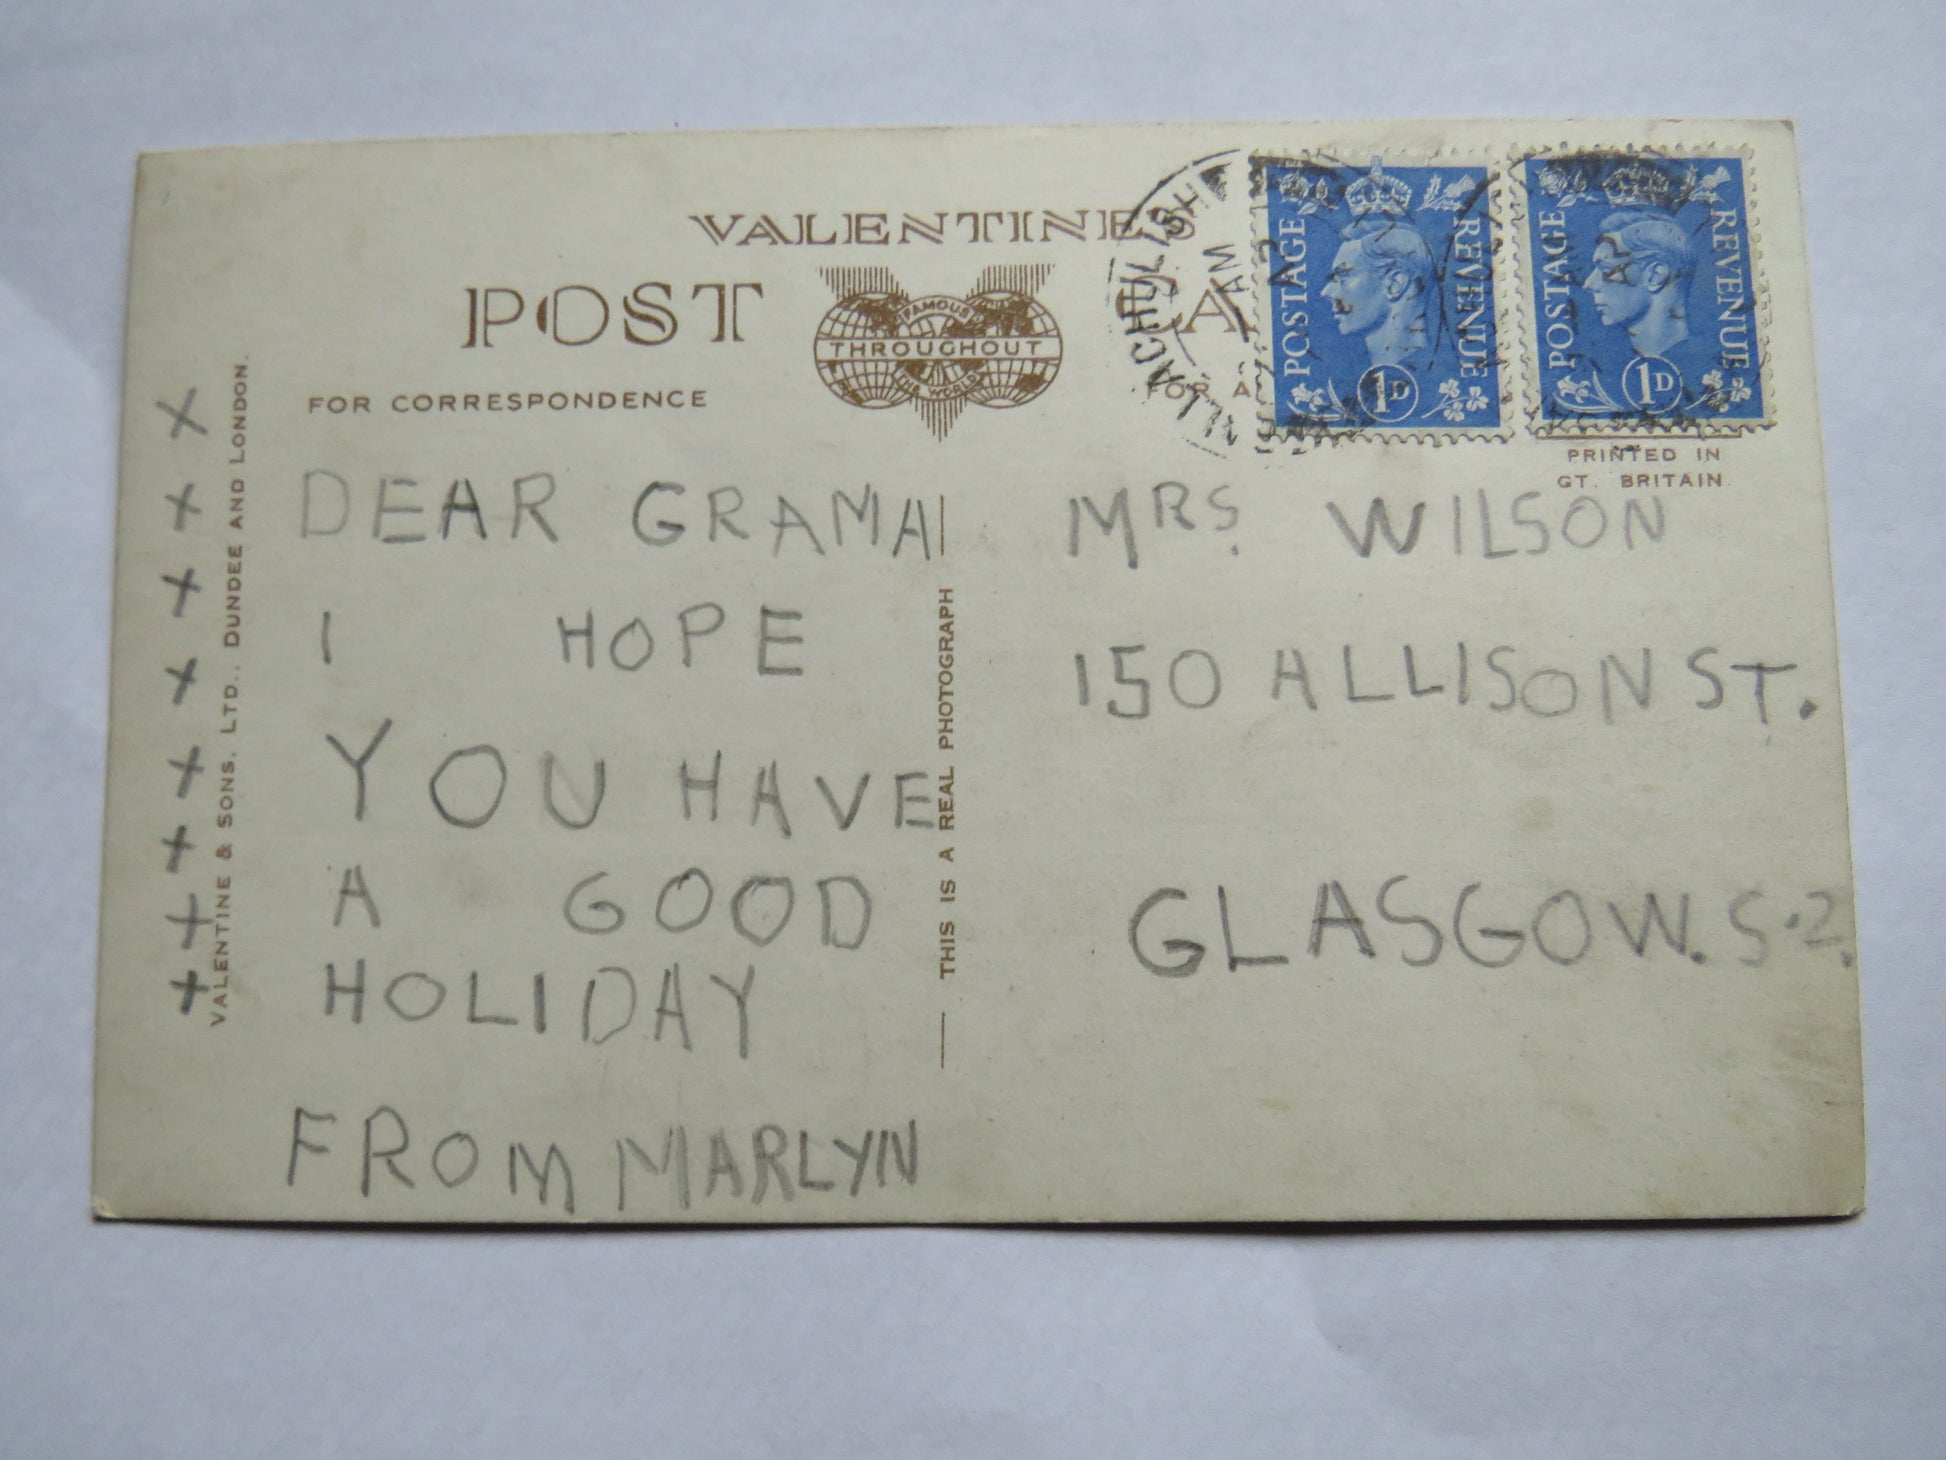 VALENTINE'S
POST CA
FAMOUS
THROUGHOUT
THE WORLD
FOR CORRESPONDENCE
FOR A
LLACHULISH
AM
POSTAGE REVENUE
1D
POSTAGE REVENUE
1D
PRINTED IN
GT. BRITAIN.
DEAR GRAMA
I HOPE
YOU HAVE
A GOOD
HOLIDAY
FROM MARLYN
X
X
X
X
X
X
X
X
VALENTINE & SONS. LTD., DUNDEE AND LONDON.
THIS IS A REAL PHOTOGRAPH
MRS. WILSON
150 ALLISON ST.
GLASGOW. S.2.